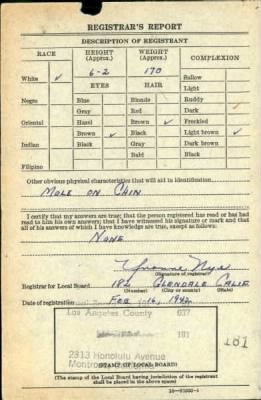 REGISTRAR'S REPORT
DESCRIPTION OF REGISTRANT
RACE HEIGHT (Approx.) WEIGHT (Approx.) COMPLEXION
6-2 170
White ✓ Sallow
EYES HAIR Light
Negro Blue Blonde Ruddy
Gray Red Dark
Oriental Hazel Brown ✓ Freckled
Brown ✓ Black Light brown ✓
Indian Black Gray Dark brown
Bald Black
Filipino
Other obvious physical characteristics that will aid in identification
MOLE ON CHIN
I certify that my answers are true; that the person registered has read or has had
read to him his own answers; that I have witnessed his signature or mark and that
all of his answers of which I have knowledge are true, except as follows:
NONE
Yvonne Nye
(Signature of registrar)
Registrar for Local Board 182 GLENDALE CALIF
(Number) (City or county) (State)
Date of registration FEB 16, 1942
Los Angeles County 037
181
2313 Honolulu Avenue
181
(STAMP OF LOCAL BOARD)
(The stamp of the Local Board having jurisdiction of the registrant
shall be placed in the above space)